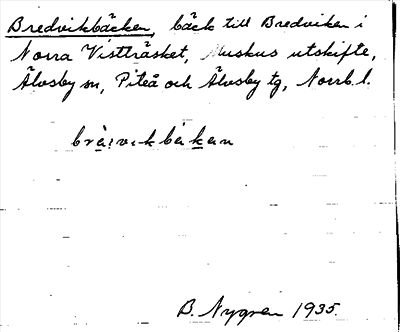 Bredvikbäcken, bäck till Bredviken i
Norra Vistträsket, Muskus utskifte,
Älvsby sn, Piteå och Älvsby tg, Norrb. l.
B. Nygren 1935.